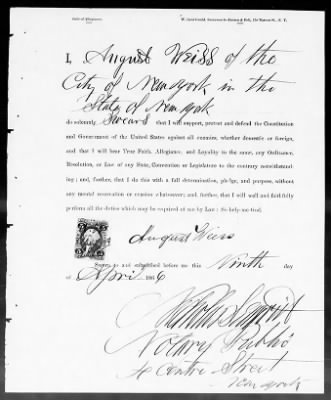 Oath of Allegiance.
I, August Weiss of the
City of New York in the
State of New York
do solemnly Swears that I will support, protect and defend the Constitution
and Government of the United States against all enemies, whether domestic or foreign,
and that I will bear True Faith, Allegiance, and Loyalty to the same, any Ordinance,
Resolution, or Law of any State, Convention or Legislature to the contrary notwithstand-
ing; and, further, that I do this with a full determination, pledge, and purpose, without
any mental reservation or evasion whatsoever; and, further, that I will well and faithfully
perform all the duties which may be required of me by Law: So help me God.
August Weiss
Sworn to and subscribed before me this Ninth day
of April 1866
Notary Public
Centre Street
New York